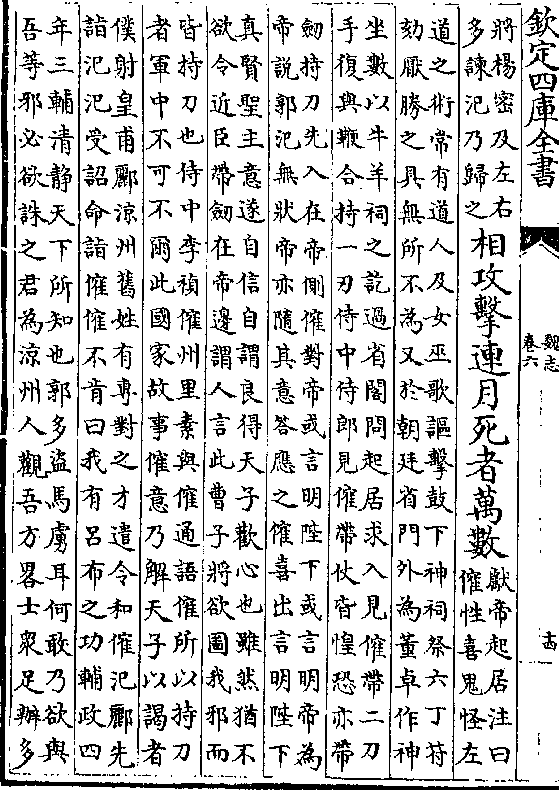 欽定四庫全書
魏志
卷六
十四
將楊密及左右
多諫汜乃歸之
相攻擊連月死者萬數
獻帝起居注曰
傕性喜鬼怪左
道之術常有道人及女巫歌謳擊鼓下神祠祭六丁符
劾厭勝之具無所不為又於朝廷省門外為董卓作神
坐數以牛羊祠之訖過省閤問起居求入見傕帶二刀
手復與鞭合持一刃侍中侍郎見傕帶仗皆惶恐亦帶
劒持刀先入在帝側傕對帝或言明陛下或言明帝為
帝說郭汜無狀帝亦隨其意答應之傕喜出言明陛下
真賢聖主意遂自信自謂良得天子歡心也雖然猶不
欲令近臣帶劒在帝邊謂人言此曹子將欲圖我邪而
皆持刀也侍中李禎傕州里素與傕通語傕所以持刀
者軍中不可不爾此國家故事傕意乃解天子以謁者
僕射皇甫酈涼州舊姓有專對之才遣令和傕汜酈先
詣汜汜受詔命詣傕傕不肯曰我有呂布之功輔政四
年三輔清靜天下所知也郭多盜馬虜耳何敢乃欲與
吾等邪必欲誅之君為涼州人觀吾方畧士衆足辦多